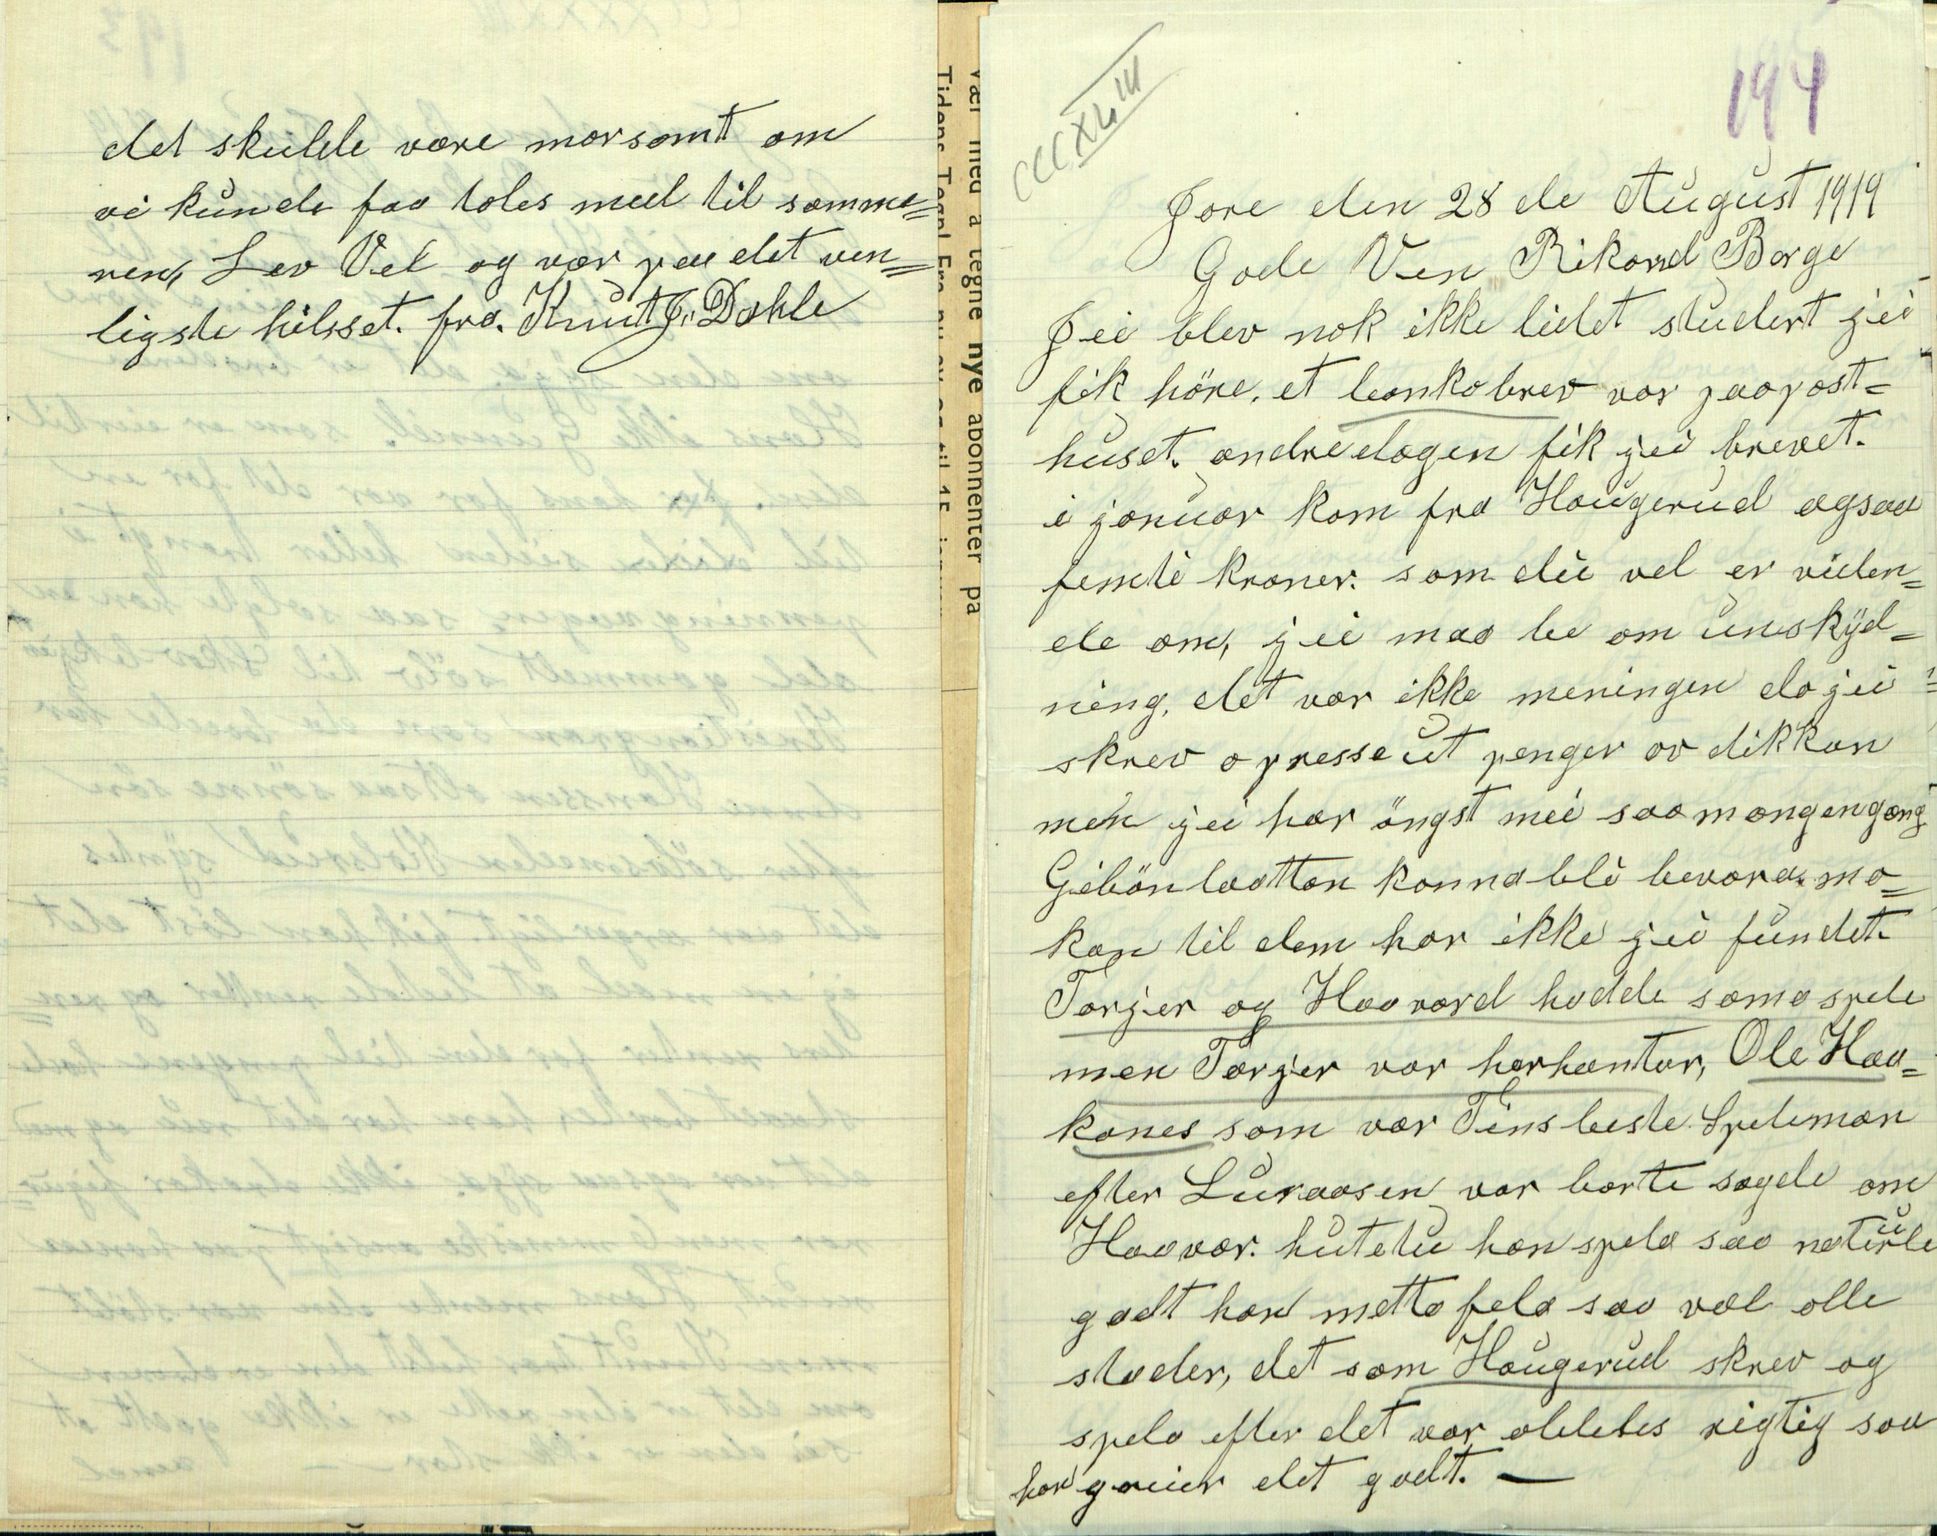 det skulde være morsomt om
vi kunde faa tales med til somme=
ren, Lev Vel og vær paa det ven=
ligste hilsset. fra. Knut J. Dahle
vær med å tegne nye abonnenter på
CCCXLIII
194
Jore den 28 de August 1919
Gode Ven Rikard Berge
Jei blev nok ikke lidet studert jei
fik höre, et bankobrev var paapost=
huset. andredagen fik jei brevet.
i januar kom fra Haugerud agsaa
femti kroner. som du vel er viden=
de om, jei maa be om unskyld=
ning, det var ikke meningen da jei
skrev a presse ut penger av dikkan
men jei har öngst mei saa mangengang
Giböen laattan kanna bli bevara. ma=
kan til dem har ikke jei fundet.
Tarjer og Haavard hadde sama spele
men Tarjer var harhæntar, Ole Haa=
kanes som var Tins beste Speleman
efter Luraasen var borte sagde om
Haavar. hutetu han spela saa naturle
godt han metta fela saa væl alle
stader, det som Haugerud skrev og
spela efter det var aldeles rigtig saa
han greier det godt. —